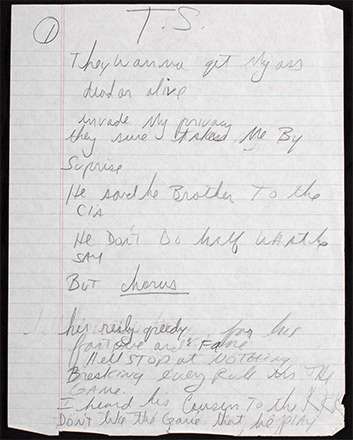 1
T.S.
They wanna get My ass
dead or alive
invade My privacy
they sure takes Me By
Suprise
He said he Brother To the
CIA
He Don't Do half What he
SAY
But chorus
his really greedy for his
fortune and Fame
Hell STOP at NOTHING
Breaking every Rule in The
GAME
I heard his Cousin To the KKK
Don't like the Game that he play